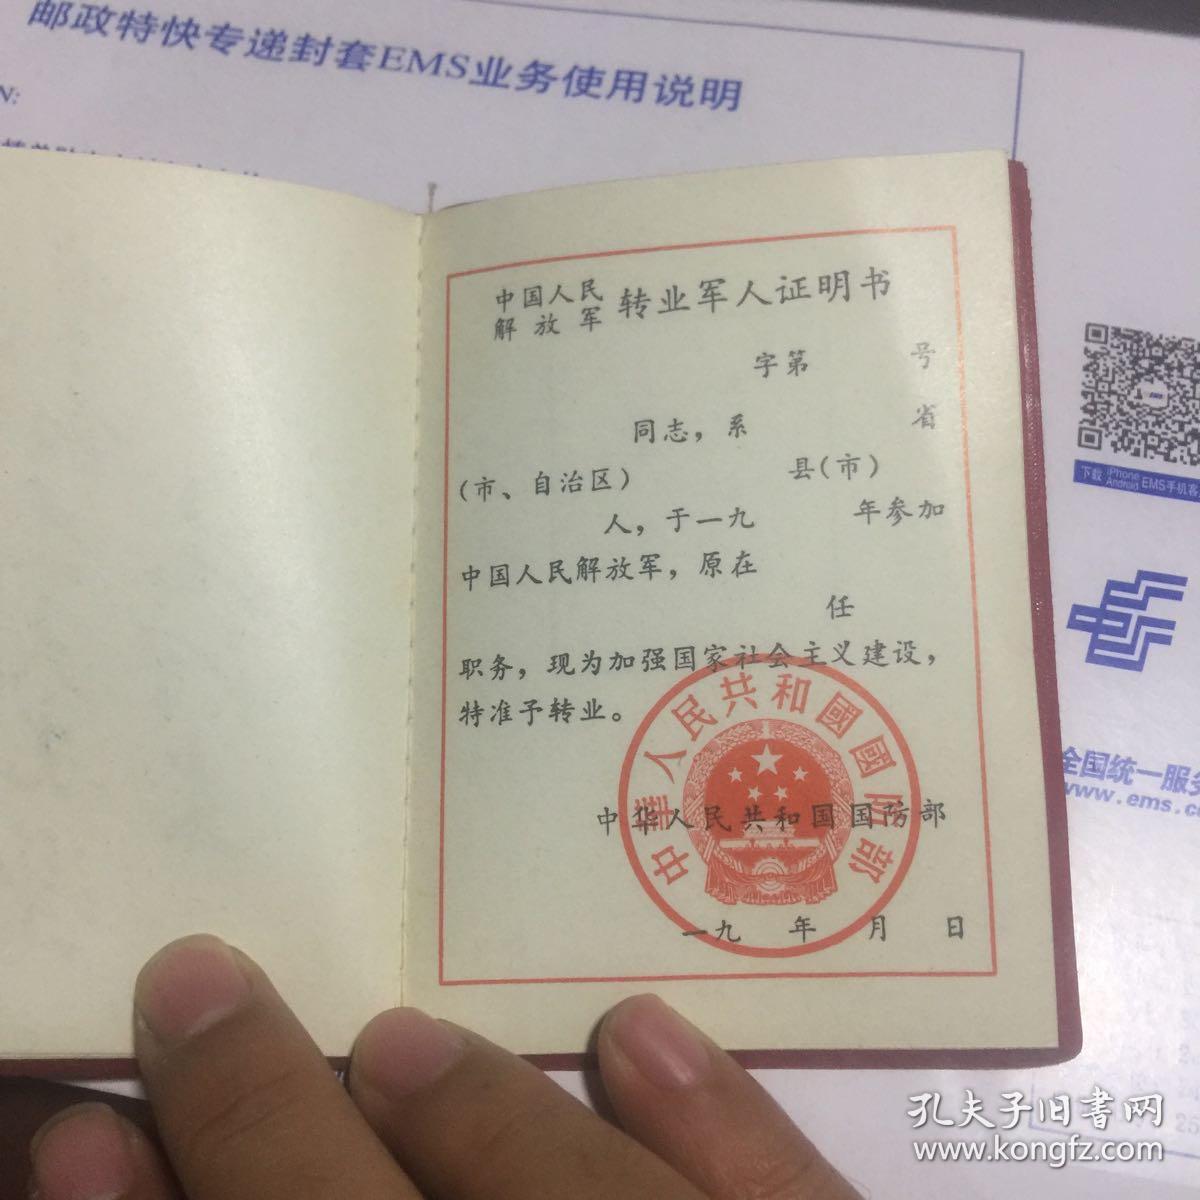 邮政特快专递封套EMS业务使用说明
N:
中国人民
解放军
转业军人证明书
字第 号
同志，系 省
(市、自治区) 县(市)
人，于一九 年参加
中国人民解放军，原在
任
职务，现为加强国家社会主义建设，
特准予转业。
中華人民共和國國防部
中华人民共和国国防部
一九 年 月 日
下载 iPhone Android EMS手机客
全国统一服务
www.ems.c
孔夫子旧书网
www.kongfz.com